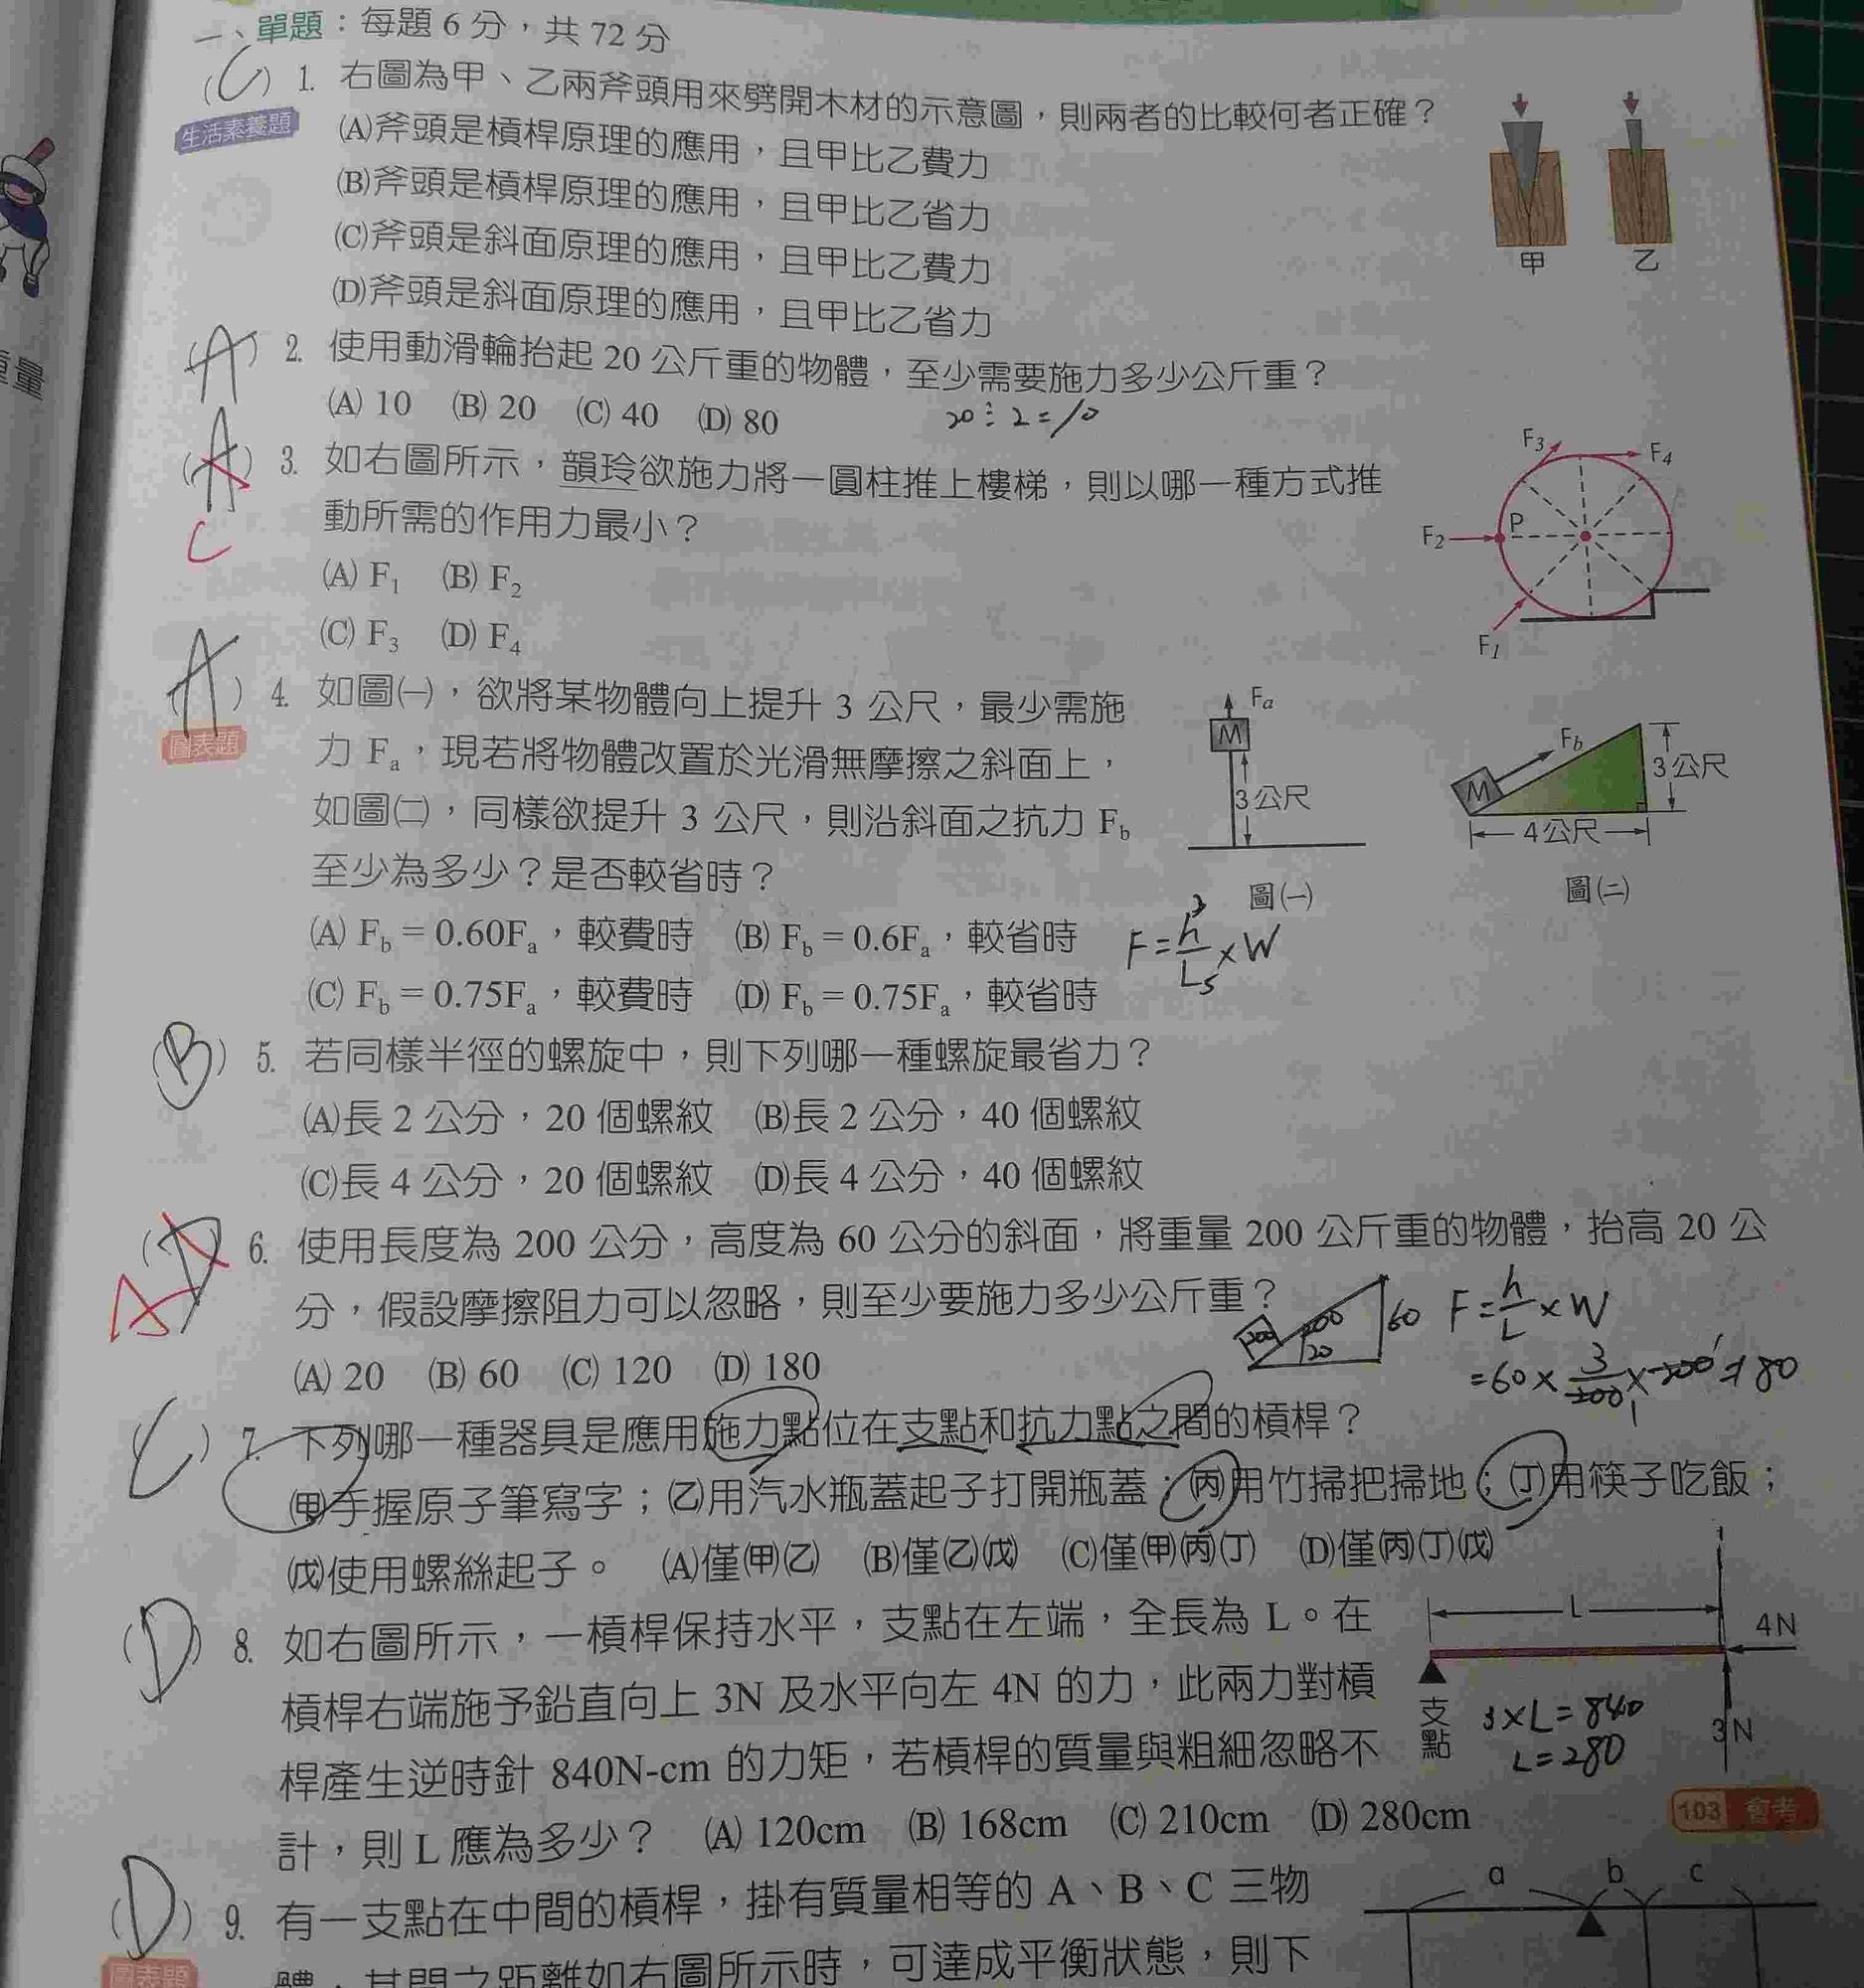 一、單題：每題 6 分，共 72 分
(C) 1. 右圖為甲、乙兩斧頭用來劈開木材的示意圖，則兩者的比較何者正確？
生活素養題
(A)斧頭是槓桿原理的應用，且甲比乙費力
(B)斧頭是槓桿原理的應用，且甲比乙省力
(C)斧頭是斜面原理的應用，且甲比乙費力
(D)斧頭是斜面原理的應用，且甲比乙省力
甲 乙
(A) 2. 使用動滑輪抬起 20 公斤重的物體，至少需要施力多少公斤重？
(A) 10 (B) 20 (C) 40 (D) 80
20÷2=10
(A) 3. 如右圖所示，韻玲欲施力將一圓柱推上樓梯，則以哪一種方式推
C
動所需的作用力最小？
(A) F1 (B) F2
(C) F3 (D) F4
F3 F4
F2 P
F1
(A) 4. 如圖㈠，欲將某物體向上提升 3 公尺，最少需施
圖表題
力 Fa，現若將物體改置於光滑無摩擦之斜面上，
如圖㈡，同樣欲提升 3 公尺，則沿斜面之抗力 Fb
至少為多少？是否較省時？
(A) Fb = 0.60Fa，較費時 (B) Fb = 0.6Fa，較省時
(C) Fb = 0.75Fa，較費時 (D) Fb = 0.75Fa，較省時
Fa
M
3公尺
圖㈠
Fb
M
3公尺
4公尺
圖㈡
F=h/L×W
3
5
(B) 5. 若同樣半徑的螺旋中，則下列哪一種螺旋最省力？
(A)長 2 公分，20 個螺紋 (B)長 2 公分，40 個螺紋
(C)長 4 公分，20 個螺紋 (D)長 4 公分，40 個螺紋
(D) 6. 使用長度為 200 公分，高度為 60 公分的斜面，將重量 200 公斤重的物體，抬高 20 公
A
分，假設摩擦阻力可以忽略，則至少要施力多少公斤重？
(A) 20 (B) 60 (C) 120 (D) 180
200 200 20 60
F=h/L×W
=60×3/200×200=180
(C) 7. 下列哪一種器具是應用施力點位在支點和抗力點之間的槓桿？
㈙手握原子筆寫字；㈚用汽水瓶蓋起子打開瓶蓋；㈛用竹掃把掃地；㈜用筷子吃飯；
㈝使用螺絲起子。 (A)僅㈙㈚ (B)僅㈚㈝ (C)僅㈙㈛㈜ (D)僅㈛㈜㈝
(D) 8. 如右圖所示，一槓桿保持水平，支點在左端，全長為 L。在
槓桿右端施予鉛直向上 3N 及水平向左 4N 的力，此兩力對槓
桿產生逆時針 840N-cm 的力矩，若槓桿的質量與粗細忽略不
計，則 L 應為多少？ (A) 120cm (B) 168cm (C) 210cm (D) 280cm
L
4N
支點
3N
3×L=840
L=280
103 會考
(D) 9. 有一支點在中間的槓桿，掛有質量相等的 A、B、C 三物
圖表題
體，其間之距離如右圖所示時，可達成平衡狀態，則下
a b c
重量